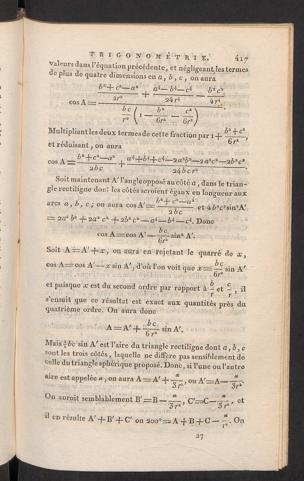 TRIGONOMÉTRIE. 417
valeurs dans l'équation précédente, et négligeant les termes
de plus de quatre dimensions en a, b, c, on aura
cos A = ((b²+c²−a²)/2r² + (a⁴−b⁴−c⁴)/24r⁴ − b²c²/4r⁴) / (bc/r² (1 − b²/6r² − c²/6r²))
Multipliant les deux termes de cette fraction par 1 + (b²+c²)/6r²,
et réduisant, on aura
cos A = (b²+c²−a²)/2bc + (a⁴+b⁴+c⁴−2a²b²−2a²c²−2b²c²)/24bcr²
Soit maintenant A' l'angle opposé au côté a, dans le trian-
gle rectiligne dont les côtés seroient égaux en longueur aux
arcs a, b, c; on aura cos A' = (b²+c²−a²)/2bc et 4b²c² sin² A'
= 2a²b² + 2a²c² + 2b²c² − a⁴ − b⁴ − c⁴. Donc
cos A = cos A' − bc/6r² sin² A'.
Soit A = A' + x, on aura en rejetant le quarré de x,
cos A = cos A' − x sin A', d'où l'on voit que x = bc/6r² sin A'
et puisque x est du second ordre par rapport à b/r et c/r, il
s'ensuit que ce résultat est exact aux quantités près du
quatrième ordre. On aura donc
A = A' + bc/6r² sin A'.
Mais ½ bc sin A' est l'aire du triangle rectiligne dont a, b, c
sont les trois côtés, laquelle ne differe pas sensiblement de
celle du triangle sphérique proposé. Donc, si l'une ou l'autre
aire est appelée α, on aura A = A' + α/3r², ou A' = A − α/3r².
On auroit semblablement B' = B − α/3r², C' = C − α/3r², et
il en résulte A' + B' + C' ou 200° = A + B + C − α/r². On
27